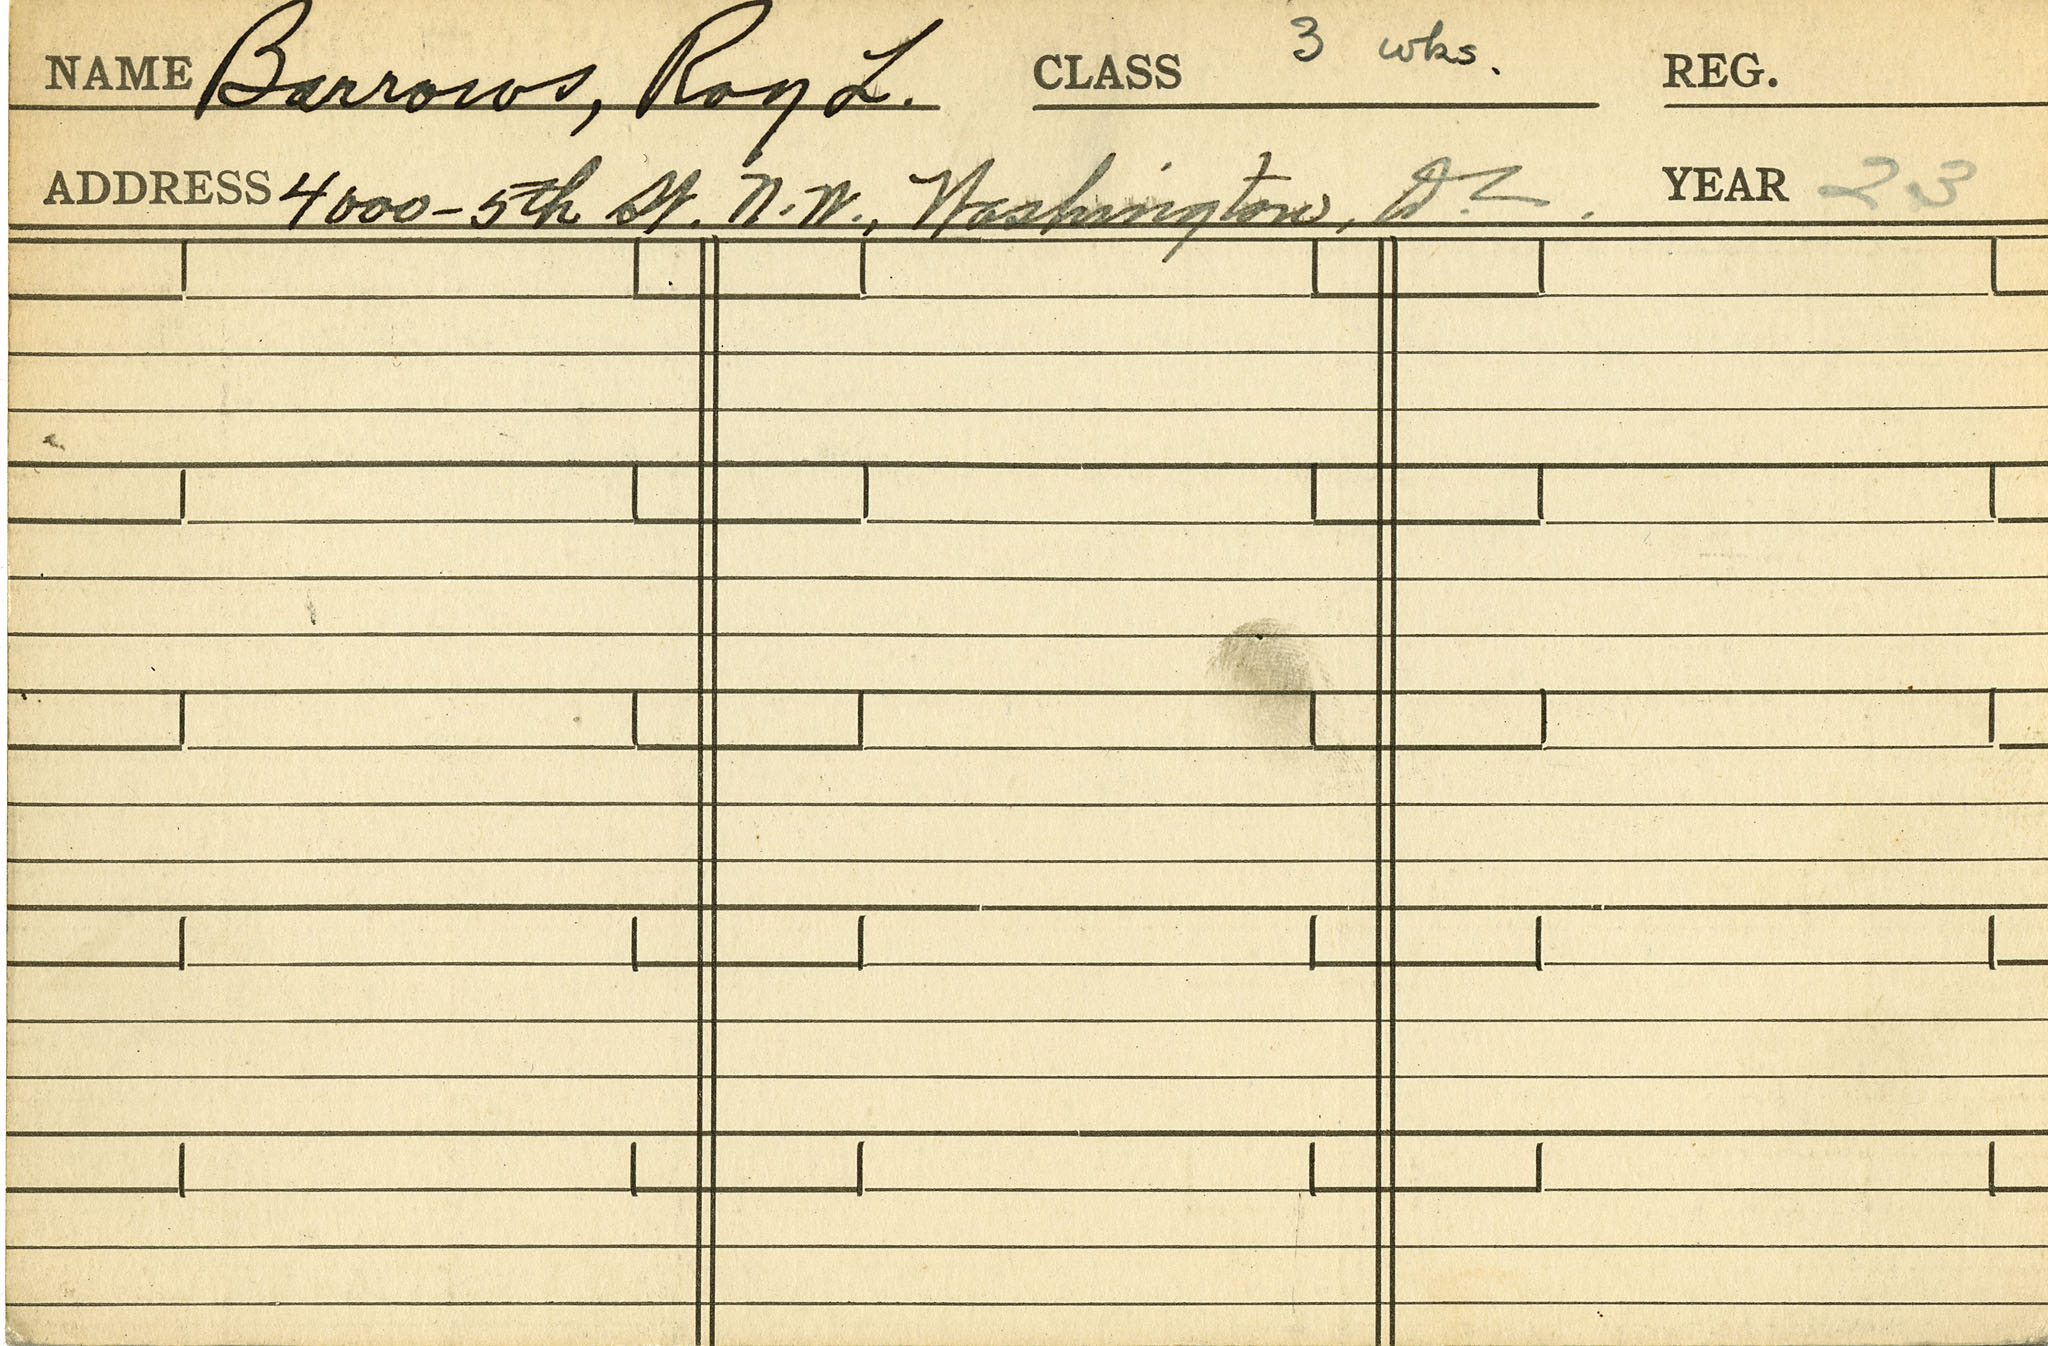 NAME Barrows, Roy L. CLASS 3 wks. REG.
ADDRESS 4000-5th St. N.W., Washington, D.C. YEAR 23